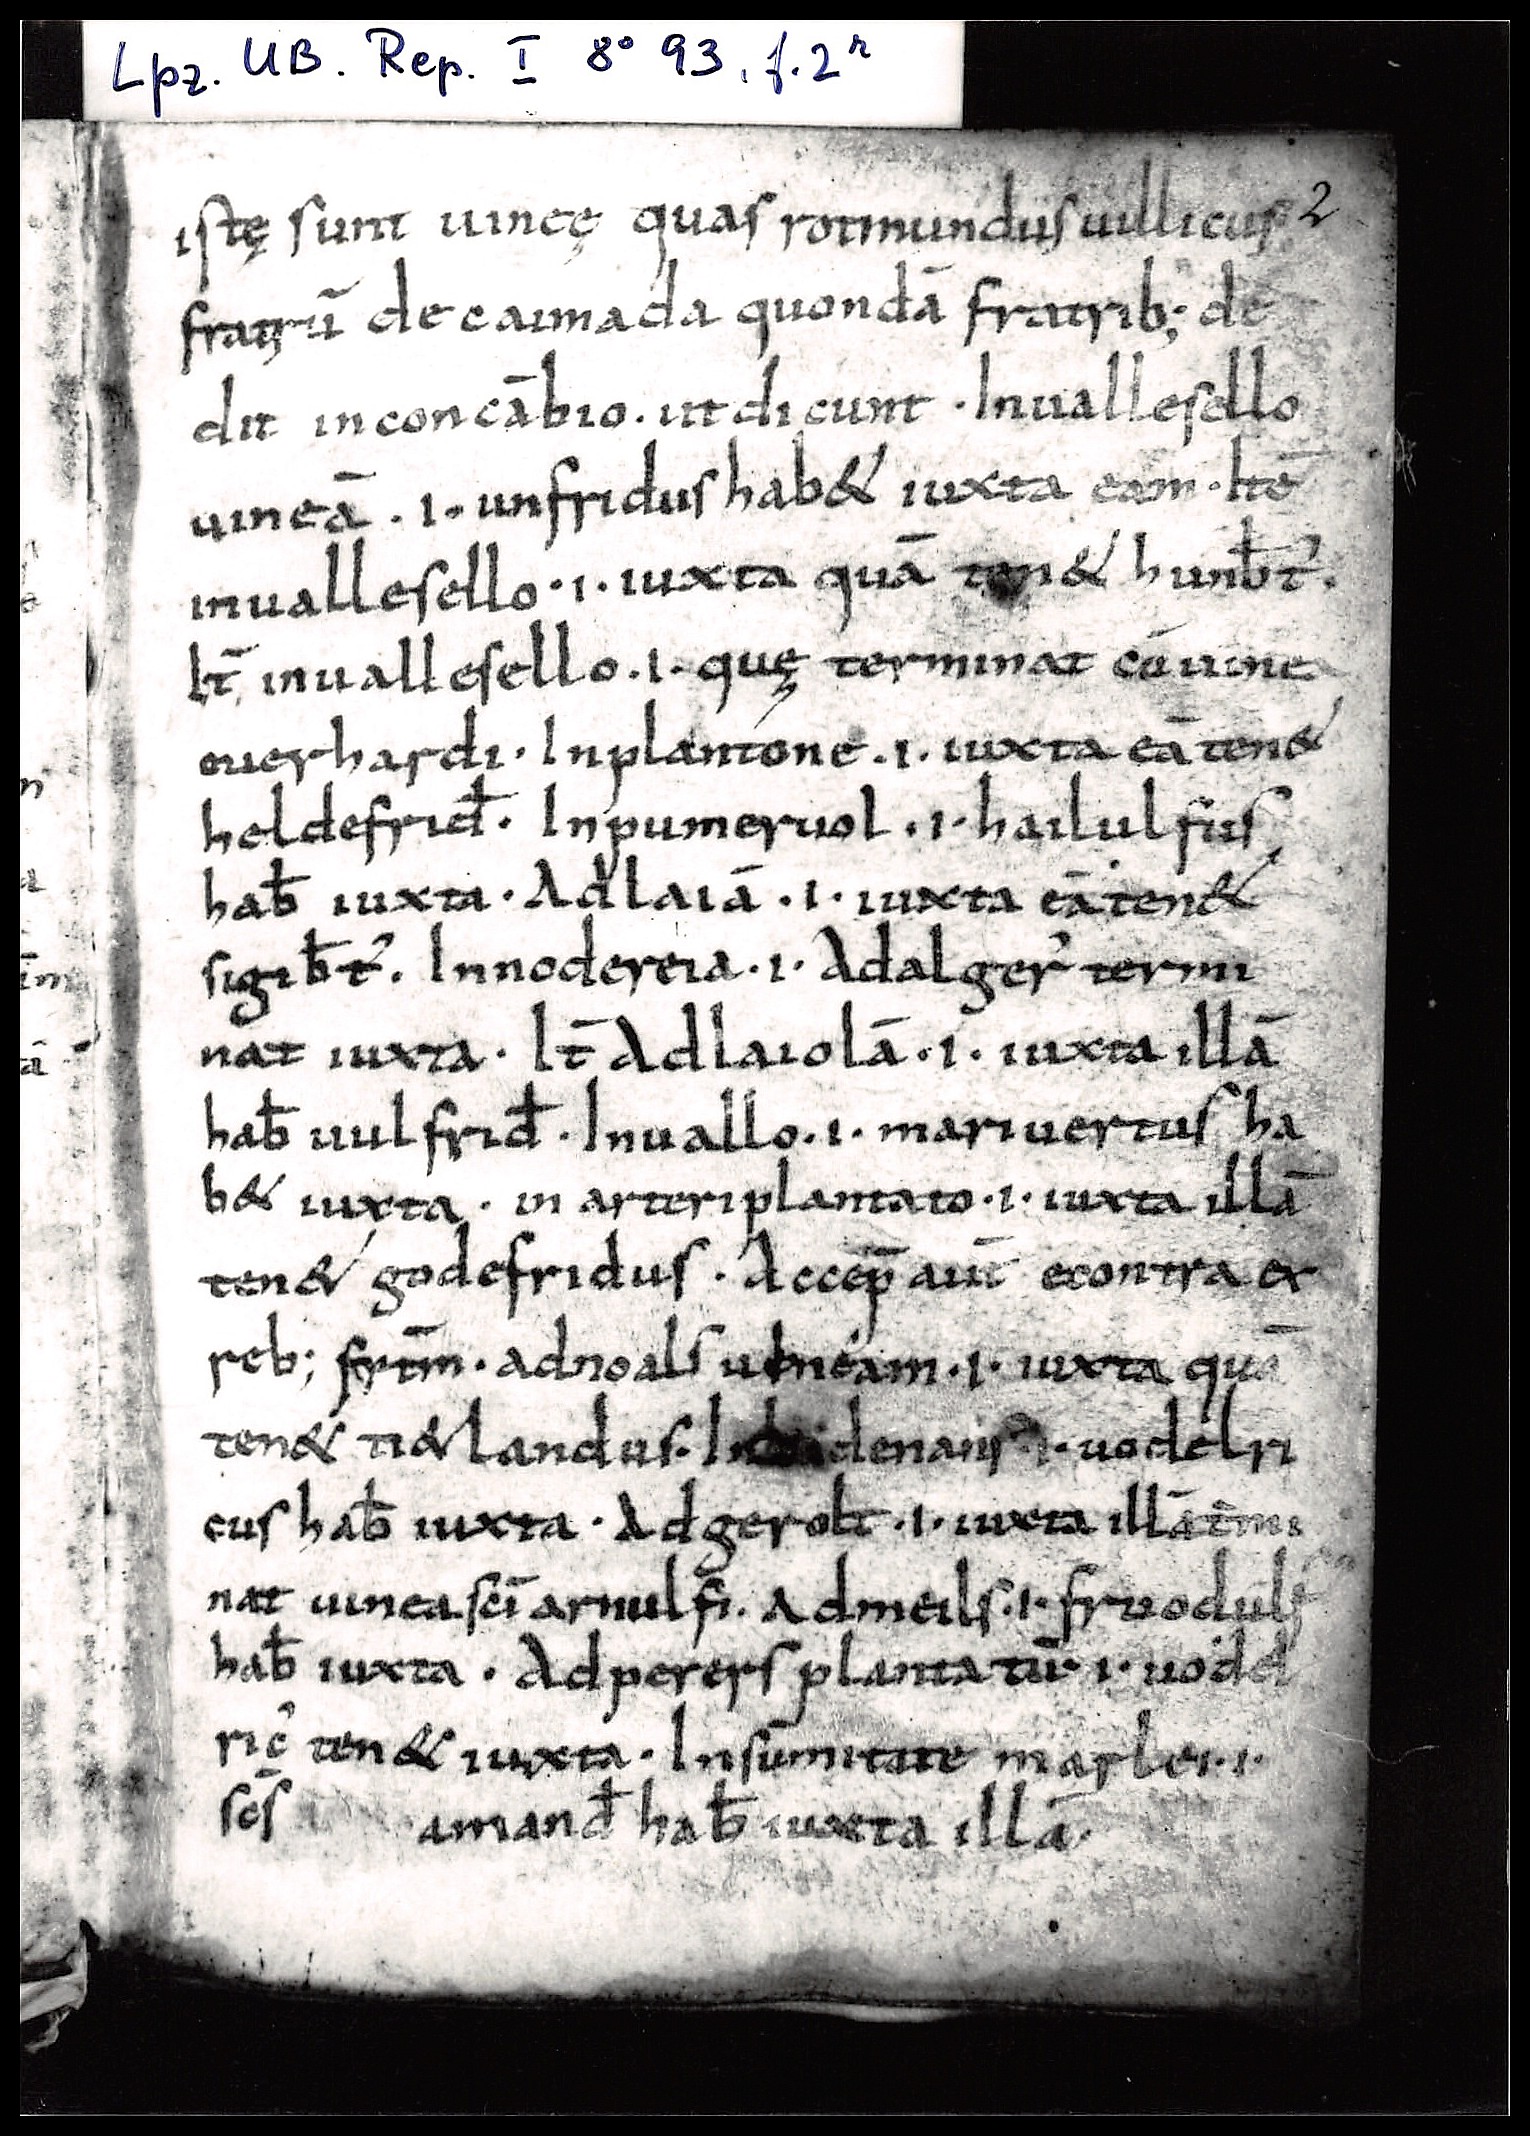 Lpz. UB. Rep. I 8° 93, f. 2r
2
istę sunt uineę quas rotmundus uillicus
fratrū de caimada quondā fratrib; de
dit in concābio. ut dicunt · Inuallesello
uineā . i. unfridus hab& iuxta eam · Itē
inuallesello · i. iuxta quā ten& hunb̄t᾽.
It̄ inuallesello . i. quę terminat cū uinea
euerhardi · Inplantone . i. iuxta eā ten&
heldefrid̄ · Inpumeruol . i. hailulfus
hab̄ iuxta · Adlaiā . i. iuxta eā ten&
sigib̄t᾽. Innodereia . i. Adalger᾽ termi
nat iuxta · It̄ Adlaiolā . i. iuxta illā
hab̄ uulfrid̄ · Inuallo . i. mariuertus ha
b& iuxta · in arteriplantato . i. iuxta illā
ten& godefridus . Accep̄ aut̄ econtra ex
reb; frtm̄ . adnoals uineam . i. iuxta quā
ten& ti&landus. i. uodelri
cus hab̄ iuxta · Adgerolt . i. iuxta illā t̄mi
nat uinea sc̄i arnulfi. Admeils . i. fruodulf
hab̄ iuxta . Adperers plantatū . i. uodel
ric᾽ ten& iuxta . Insūmitate marlei . i.
sc̄s amand̄ hab̄ iuxta illā.